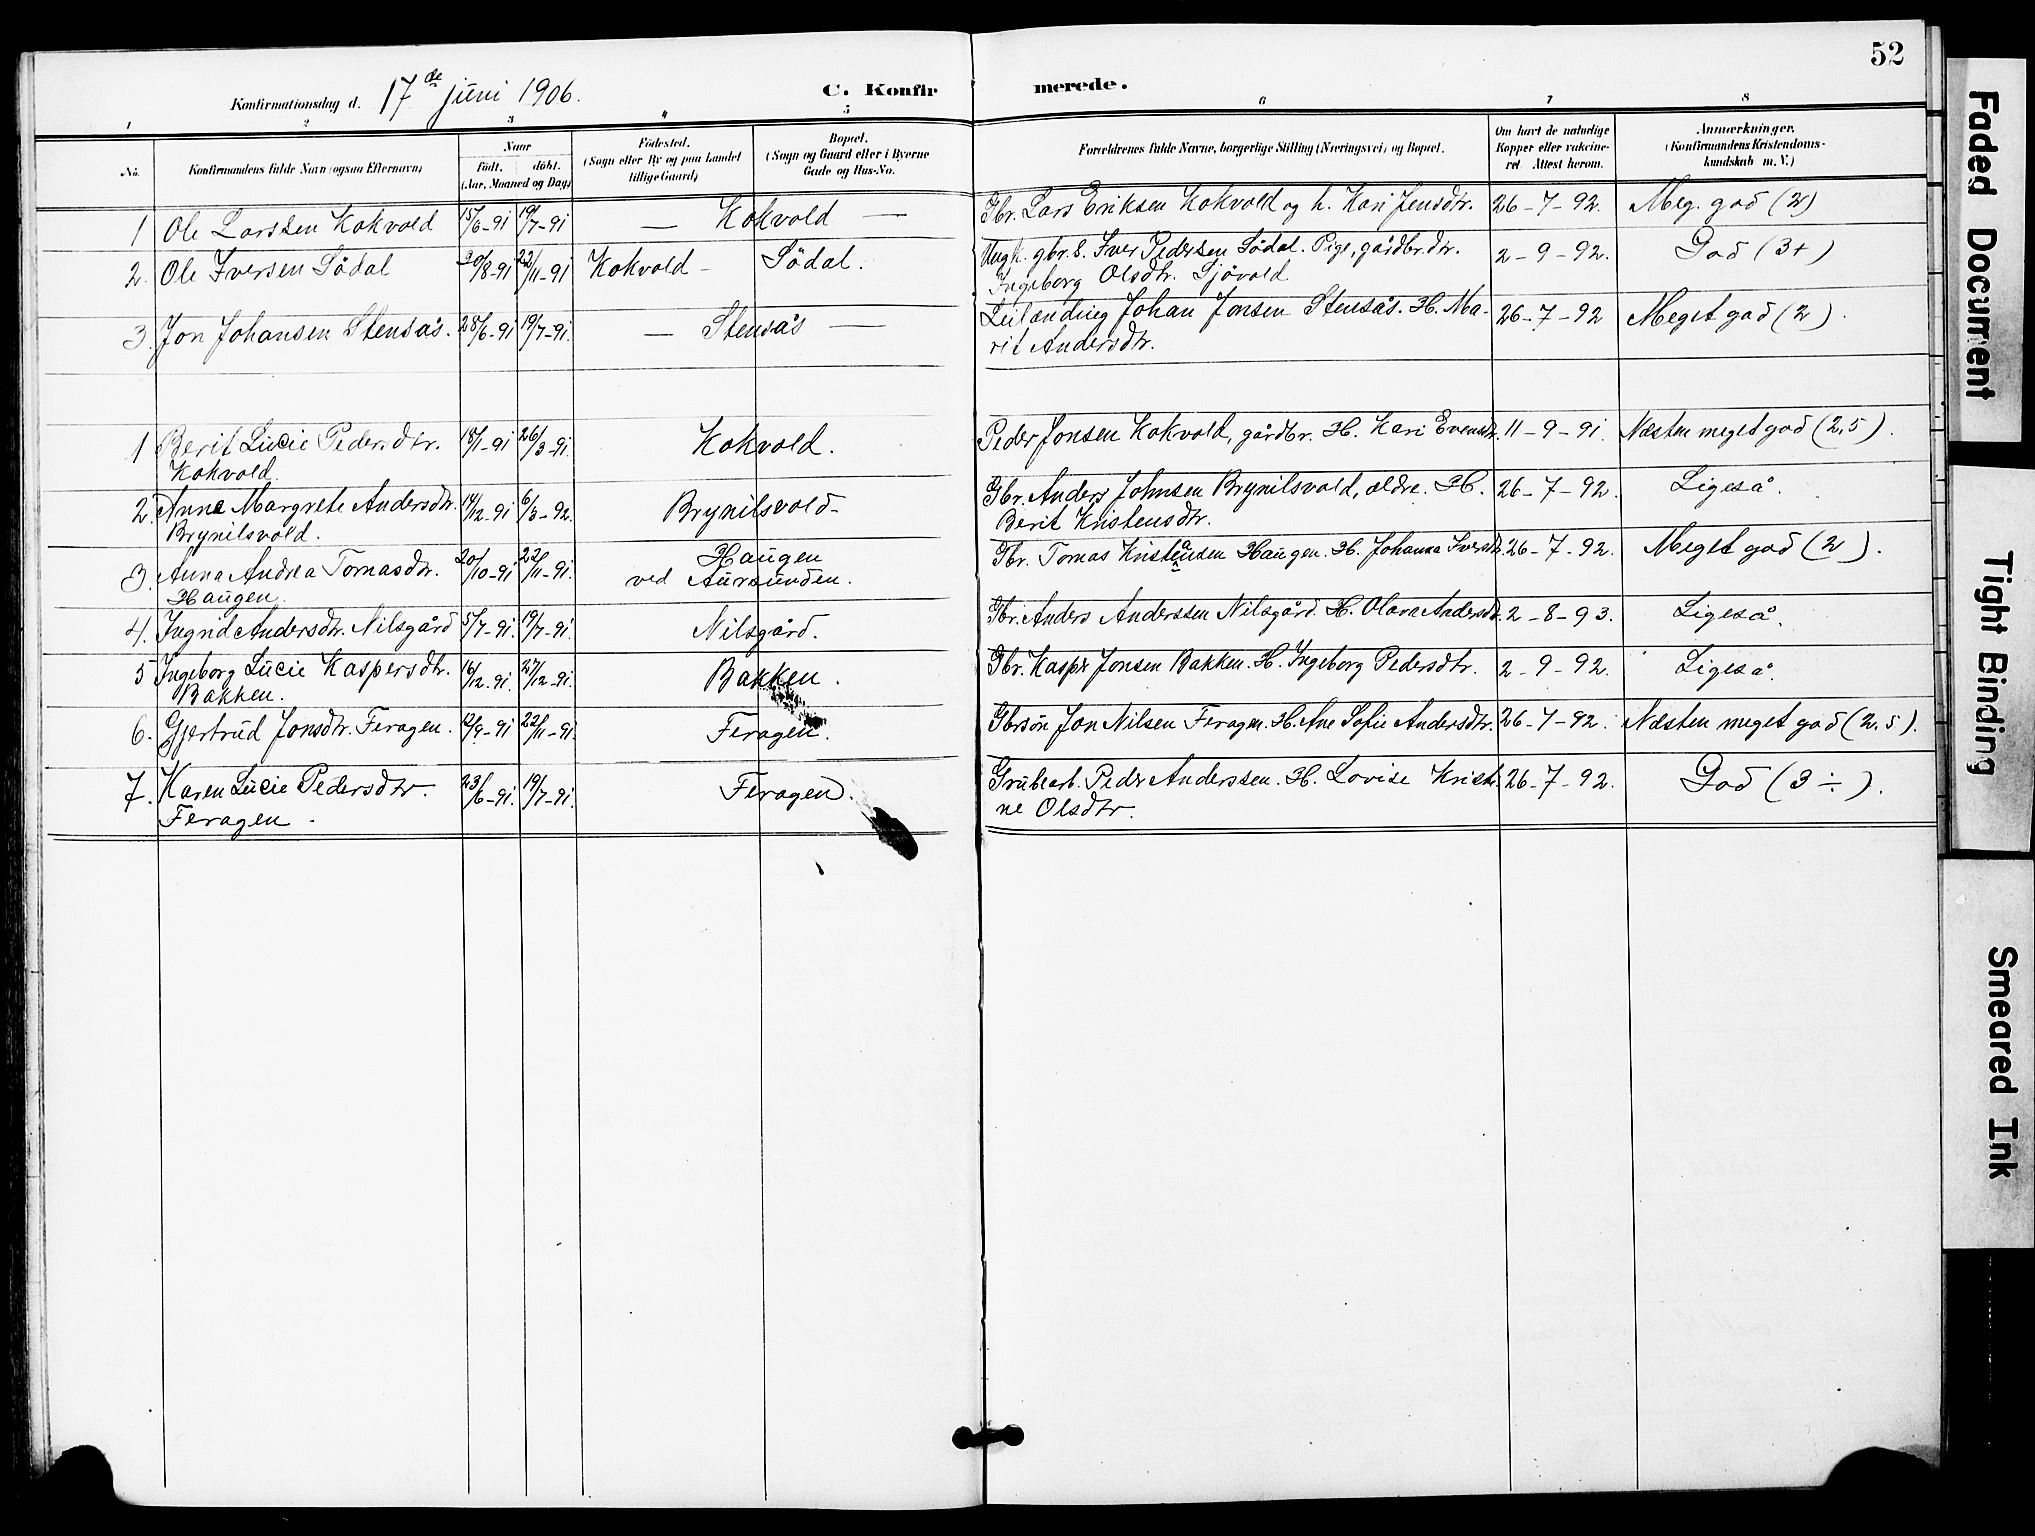 52
Konfirmationsdag d. 17de juni 1906. C. Konfirmerede.
1 2 3 4 5 6 7 8
No. Konfirmandens fulde Navn (ogsaa Efternavn) Naar født. døbt. (Aar, Maaned og Dag) Fødested. (Sogn eller By og paa Landet tillige Gaard) Bopæl. (Sogn og Gaard eller i Byerne Gade og Hus-No. Forældrenes fulde Navne, borgerlige Stilling (Næringsvei) og Bopæl. Om havt de naturlige Kopper eller vakcineret. Attest herom. Anmærkninger. (Konfirmandens Kristendomskundskab m. V.)
1 Ole Larssen Kokvold 15/6-91 19/7-91 — Kokvold — Gbr. Lars Eriksen Kokvold og h. Kari Jensdtr. 26-7-92. Meg. god (2)
2. Ole Iversen Södal 30/8-91 22/11-91 Kokvold - Södal. Ungk. gbr.s. Iver Pedersen Södal. Pige, gårdbr.dtr. 2-9-92. God (3+)
Ingeborg Olsdtr. Sjövold
3. Jon Johansen Stensås. 28/6-91 19/7-91. — Stensås — Leilænding Johan Jonsen Stensås. H. Ma- 26-7-92 Meget god (2).
rit Andersdtr.
1 Berit Lucie Pedersdtr. 18/1-91 26/3-91. Kokvold. Peder Jonsen Kokvold, gårdbr. H. Kari Evensdtr. 11-9-91. Næsten meget god (2,5).
Kokvold.
2. Anne Margrete Andersdtr. 14/12-91 6/3-92. Brynilsvold- Gbr. Anders Johnsen Brynilsvold, ældre. H. 26-7-92. Ligeså.
Brynilsvold. Berit Kristensdtr.
3. Anna Andrea Tomasdtr. 20/10-91 22/11-91. Haugen Gbr. Tomas Kristensen Haugen. H. Johanna Iversdtr. 26-7-92. Meget god (2).
Haugen. ved Aursunden.
4. Ingrid Andersdtr. Nilsgård 5/7-91. 19/7-91. Nilsgård. Gbr. Anders Anderssen Nilsgård. H. Olava Andersdtr. 2-8-93. Ligeså.
5 Ingeborg Lucie Kaspersdtr. 16/12-91. 27/12-91. Bakken. Gbr. Kasper Jonsen Bakken. H. Ingeborg Pedersdtr. 2-9-92. Ligeså.
Bakken.
6. Gjertrud Jonsdtr. Feragen. 12/9-91 22/11-91. Feragen. Gbrsön Jon Nilsen Feragen. H. Ane Sofie Andersdtr. 26-7-92. Næsten meget god (2,5).
7. Karen Lucie Pedersdtr. 23/6-91. 19/7-91. Feragen. Grubearb. Peder Anderssen. H. Lovise Kristi- 26-7-92. God (3÷).
Feragen. ne Olsdtr.
Faded Document
Tight Binding
Smeared Ink